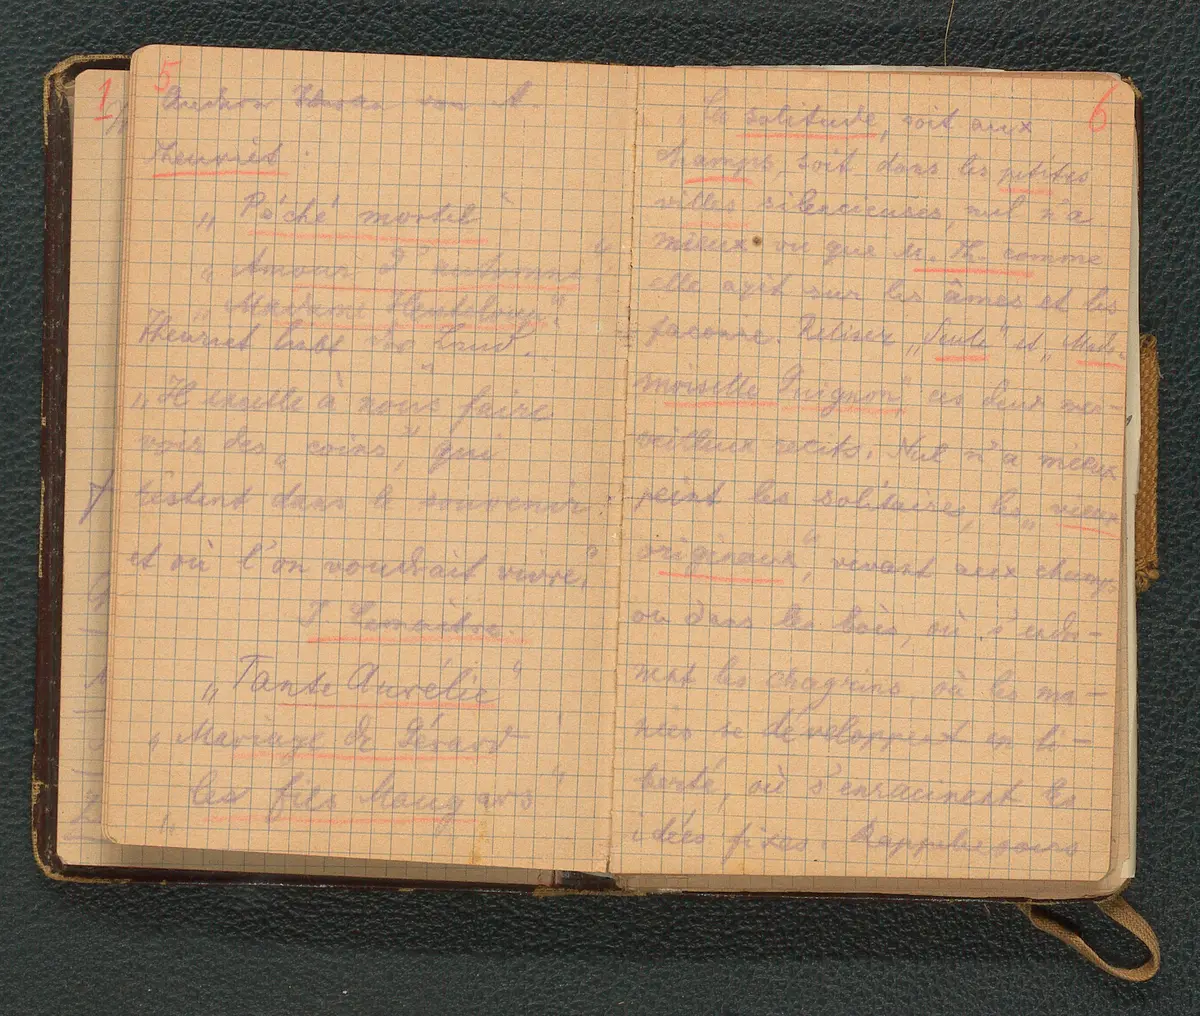 5
Andere Werke von A.
Theuriet.
„Péché mortel“
„Amour d'automne“
„Madame Heurteloup.“
Theuriet liebt das Land.
„Il excelle à nous faire
voir des „coins“, qui
restent dans le souvenir
et où l'on voudrait vivre.“
J. Lemaître.
„Tante Aurélie“
„Mariage de Gérard
„Les fils Maugars“
6
La solitude, soit aux
champs, soit dans les petites
villes silencieuses, nul n'a
mieux vu que M. Th. comme
elle agit sur les âmes et les
façonne. Relisez „ et „Made-
moiselle Guignon“, ces deux mer-
veilleux récits. Nul n'a mieux
peint les solitaires, les „vieux
originaux“, vivant aux champs
ou dans les bois, où s'endor-
ment les chagrins, où les ma-
nies se développent en li-
berté, où s'enracinent les
idées fixes. Rappelez-vous
1